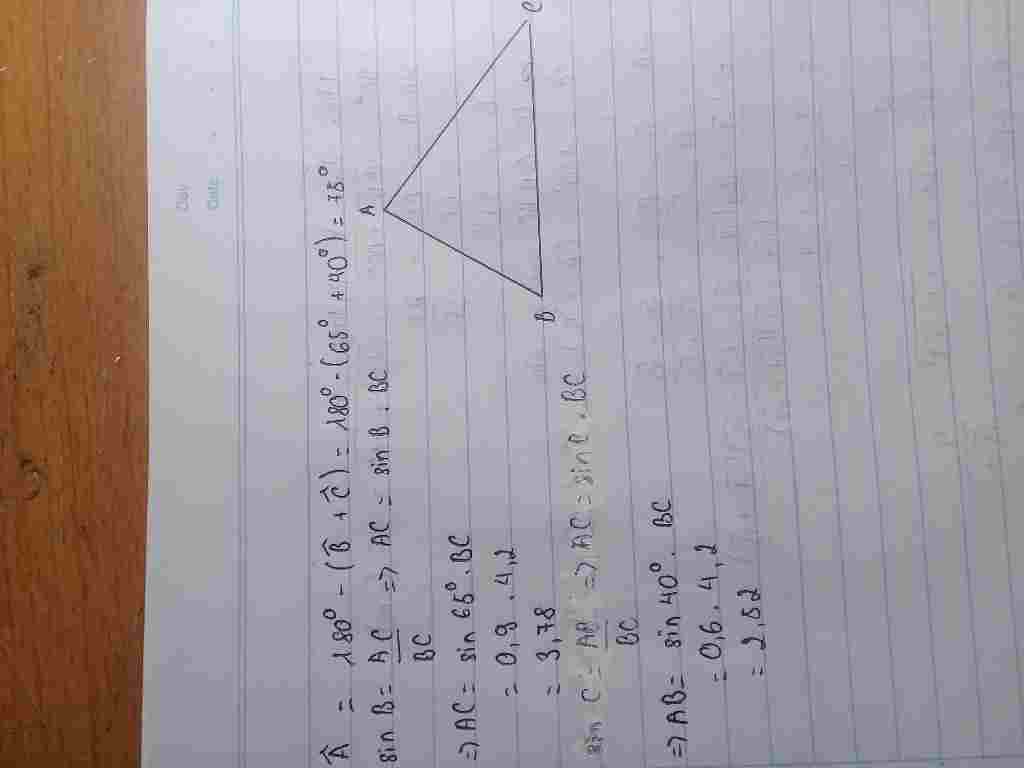 Day
Date
Â = 180° - (B̂ + Ĉ) = 180° - (65° + 40°) = 75°
A
C
B
sin B = AC/BC => AC = sin B . BC
=> AC = sin 65° . BC
= 0,9 . 4,2
= 3,78
sin C = AB/BC => AC = sin C . BC
=> AB = sin 40° . BC
= 0,6 . 4,2
= 2,52